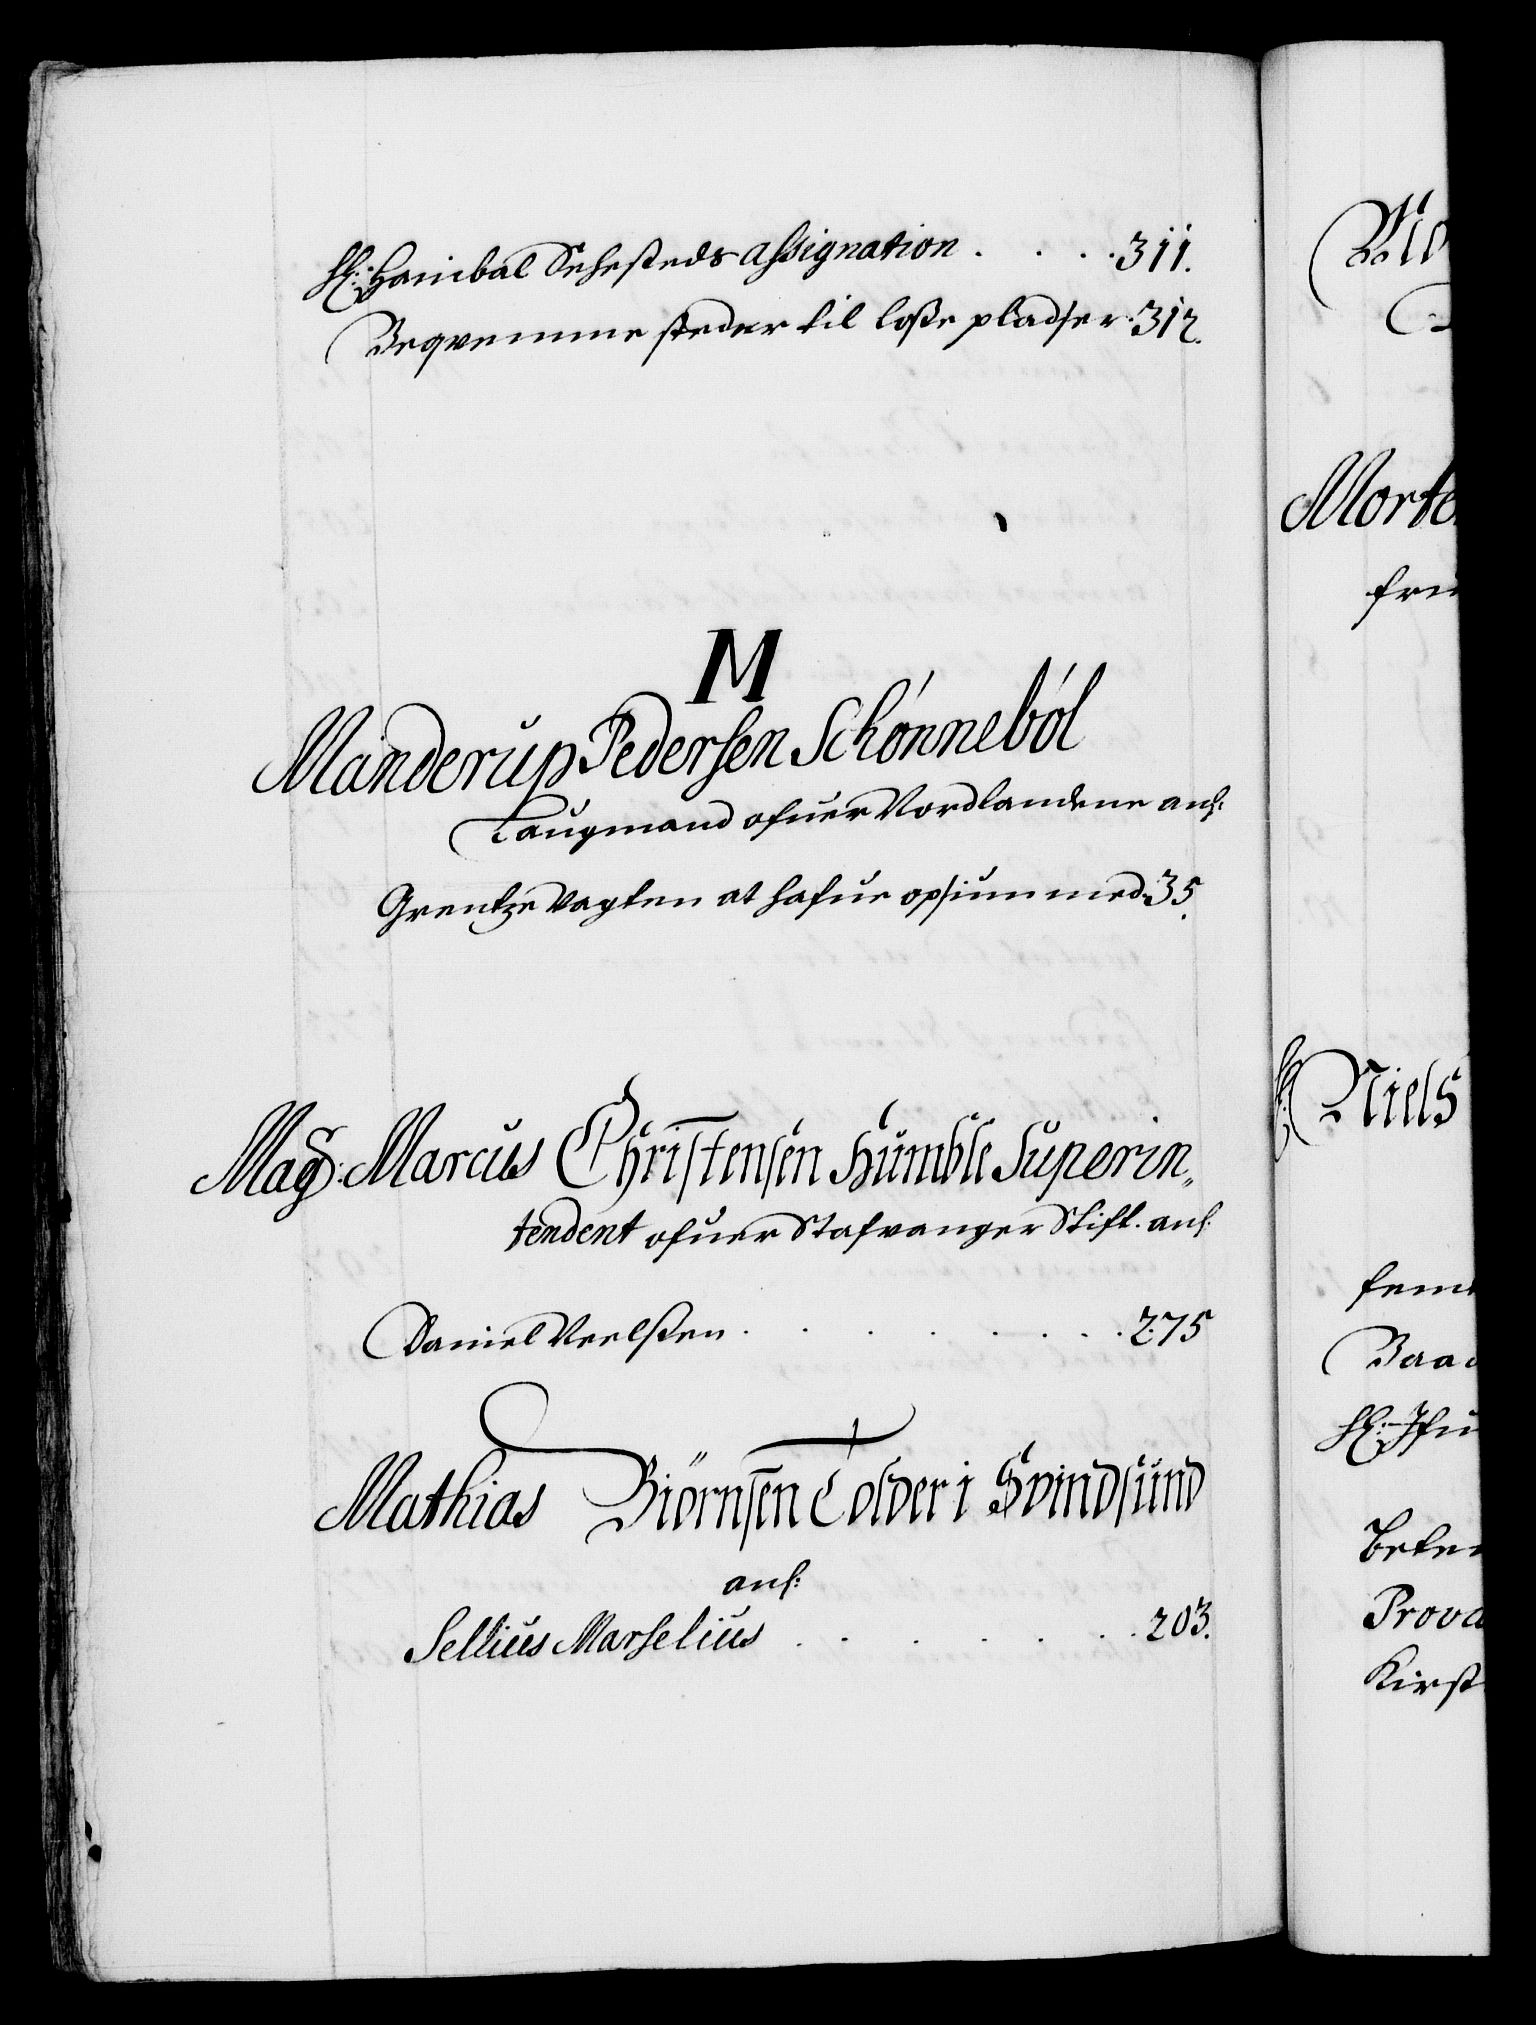 H: Hanibal Sehesteds assignation . . . . 311.
Beqvemme steder til losse pladser. 312.
M
Manderup Pedersen Schönneböl
Laugmand ofuer Nordlandene anl:
Grentze Vagten at hafue opsiun med. 35.
Mag: Marcus Christensen Humble Superin„
tendent ofuer Stafvanger Stift. anl:
Daniel Neelssen . . . . . . . . 275
Mathias Biörnsen Tolder i Svindsund
anl:
Sellius Marselius . . . . . . . 203.
Mo
Morte
fri
H: Niels
Baad
H: If
Prova
Kirst